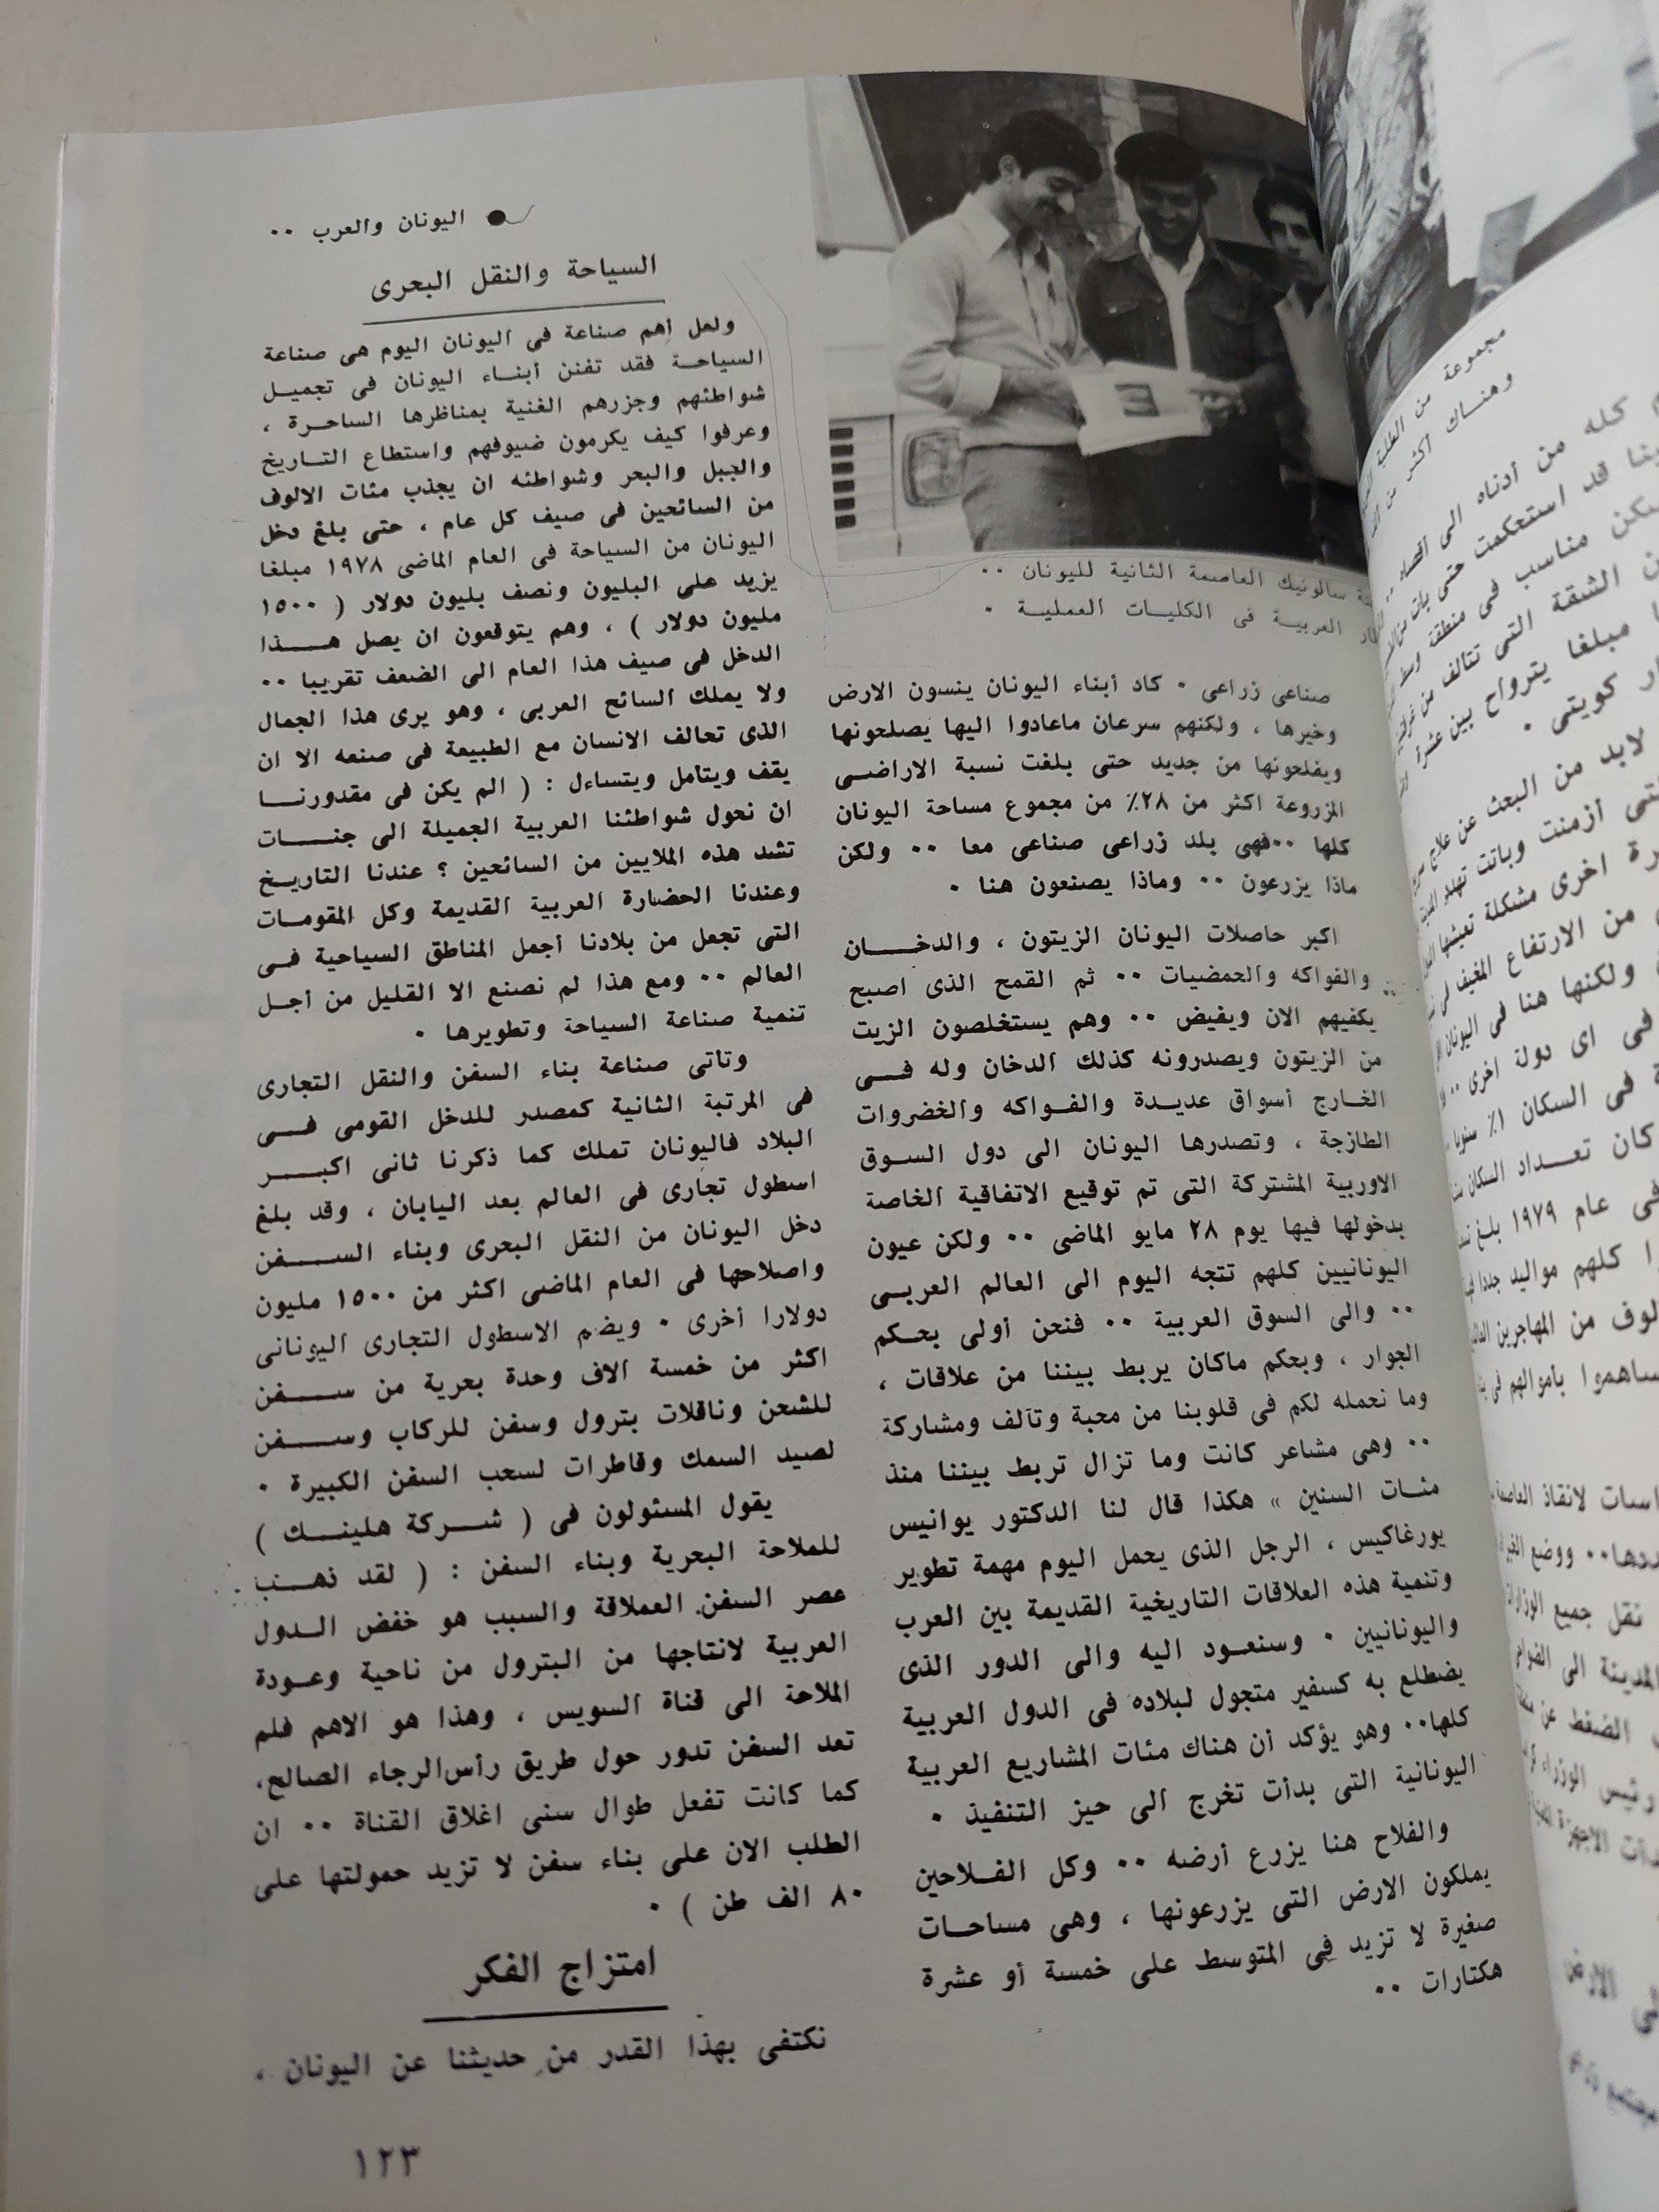 اليونان والعرب ..
سالونيك العاصمة الثانية لليونان ..
العربية فى الكليات العملية .
صناعى زراعى . كاد أبناء اليونان ينسون الارض
وخيرها ، ولكنهم سرعان ماعادوا اليها يصلحونها
ويفلحونها من جديد حتى بلغت نسبة الاراضى
المزروعة اكثر من ٢٨٪ من مجموع مساحة اليونان
كلها ..فهى بلد زراعى صناعى معا .. ولكن
ماذا يزرعون .. وماذا يصنعون هنا .
اكبر حاصلات اليونان الزيتون ، والدخان
والفواكه والحمضيات .. ثم القمح الذى اصبح
يكفيهم الان ويفيض .. وهم يستخلصون الزيت
من الزيتون ويصدرونه كذلك الدخان وله فى
الخارج أسواق عديدة والفواكه والخضروات
الطازجة ، وتصدرها اليونان الى دول السوق
الاوربية المشتركة التى تم توقيع الاتفاقية الخاصة
بدخولها فيها يوم ٢٨ مايو الماضى .. ولكن عيون
اليونانيين كلهم تتجه اليوم الى العالم العربى
.. والى السوق العربية .. فنحن أولى بحكم
الجوار ، وبحكم ماكان يربط بيننا من علاقات ،
وما نحمله لكم فى قلوبنا من محبة وتآلف ومشاركة
.. وهى مشاعر كانت وما تزال تربط بيننا منذ
مئات السنين » هكذا قال لنا الدكتور يوانيس
يورغاكيس ، الرجل الذى يحمل اليوم مهمة تطوير
وتنمية هذه العلاقات التاريخية القديمة بين العرب
واليونانيين . وسنعود اليه والى الدور الذى
يضطلع به كسفير متجول لبلاده فى الدول العربية
كلها.. وهو يؤكد أن هناك مئات المشاريع العربية
اليونانية التى بدأت تخرج الى حيز التنفيذ .
والفلاح هنا يزرع أرضه .. وكل الفلاحين
يملكون الارض التى يزرعونها ، وهى مساحات
صغيرة لا تزيد فى المتوسط على خمسة أو عشرة
هكتارات ..
السياحة والنقل البحرى
ولعل أهم صناعة فى اليونان اليوم هى صناعة
السياحة فقد تفنن أبناء اليونان فى تجميل
شواطئهم وجزرهم الغنية بمناظرها الساحرة ،
وعرفوا كيف يكرمون ضيوفهم واستطاع التاريخ
والجبل والبحر وشواطئه ان يجذب مئات الالوف
من السائحين فى صيف كل عام ، حتى بلغ دخل
اليونان من السياحة فى العام الماضى ١٩٧٨ مبلغا
يزيد على البليون ونصف بليون دولار ( ١٥٠٠
مليون دولار ) ، وهم يتوقعون ان يصل هذا
الدخل فى صيف هذا العام الى الضعف تقريبا ..
ولا يملك السائح العربى ، وهو يرى هذا الجمال
الذى تحالف الانسان مع الطبيعة فى صنعه الا ان
يقف ويتامل ويتساءل : ( الم يكن فى مقدورنا
ان نحول شواطئنا العربية الجميلة الى جنات
تشد هذه الملايين من السائحين ؟ عندنا التاريخ
وعندنا الحضارة العربية القديمة وكل المقومات
التى تجعل من بلادنا أجمل المناطق السياحية فى
العالم .. ومع هذا لم نصنع الا القليل من أجل
تنمية صناعة السياحة وتطويرها .
وتاتى صناعة بناء السفن والنقل التجارى
فى المرتبة الثانية كمصدر للدخل القومى فى
البلاد فاليونان تملك كما ذكرنا ثانى اكبر
اسطول تجارى فى العالم بعد اليابان ، وقد بلغ
دخل اليونان من النقل البحرى وبناء السفن
واصلاحها فى العام الماضى اكثر من ١٥٠٠ مليون
دولارا أخرى . ويضم الاسطول التجارى اليونانى
اكثر من خمسة الاف وحدة بحرية من سفن
للشحن وناقلات بترول وسفن للركاب وسفن
لصيد السمك وقاطرات لسحب السفن الكبيرة .
يقول المسئولون فى ( شركة هلينك )
للملاحة البحرية وبناء السفن : ( لقد ذهب
عصر السفن العملاقة والسبب هو خفض الدول
العربية لانتاجها من البترول من ناحية وعودة
الملاحة الى قناة السويس ، وهذا هو الاهم فلم
تعد السفن تدور حول طريق رأس الرجاء الصالح،
كما كانت تفعل طوال سنى اغلاق القناة .. ان
الطلب الان على بناء سفن لا تزيد حمولتها على
٨٠ الف طن ) .
امتزاج الفكر
نكتفى بهذا القدر من حديثنا عن اليونان ،
١٢٣